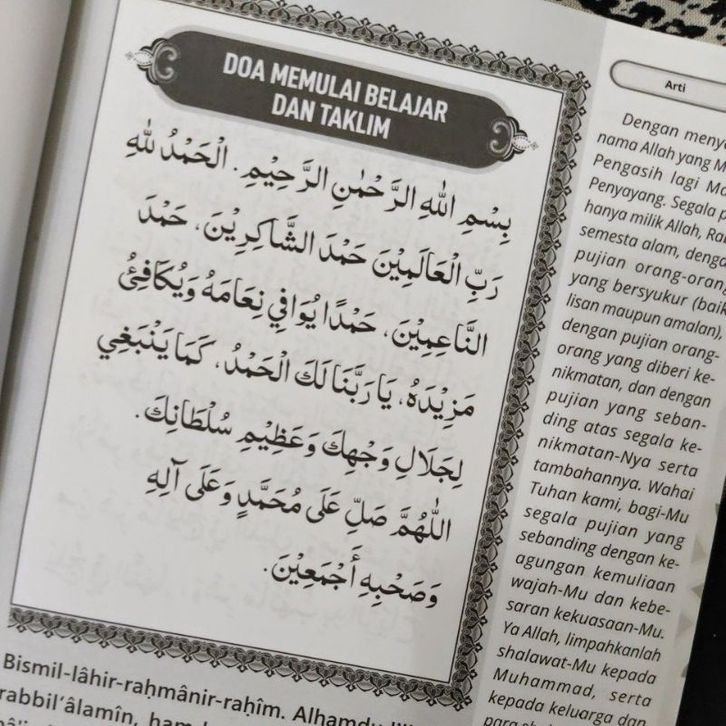 DOA MEMULAI BELAJAR
DAN TAKLIM
بِسْمِ اللهِ الرَّحْمٰنِ الرَّحِيْمِ. الْحَمْدُ لِلّٰهِ
رَبِّ الْعَالَمِيْنَ حَمْدَ الشَّاكِرِيْنَ، حَمْدَ
النَّاعِمِيْنَ، حَمْدًا يُوَافِي نِعَامَهُ وَيُكَافِئُ
مَزِيْدَهُ، يَا رَبَّنَا لَكَ الْحَمْدُ، كَمَا يَنْبَغِي
لِجَلَالِ وَجْهِكَ وَعَظِيْمِ سُلْطَانِكَ.
اَللّٰهُمَّ صَلِّ عَلَى مُحَمَّدٍ وَعَلَى آلِهِ
وَصَحْبِهِ أَجْمَعِيْنَ.
Bismil-lâhir-raḥmânir-raḥîm. Alhamdu
rabbil‘âlamîn,
Arti
Dengan
nama Allah yang
Pengasih lagi
Penyayang. Segala
hanya milik Allah,
semesta alam,
pujian
yang bersyukur (baik
lisan maupun amalan),
dengan pujian orang-
orang yang diberi ke-
nikmatan, dan dengan
pujian yang seban-
ding atas segala ke-
nikmatan-Nya serta
tambahannya. Wahai
Tuhan kami, bagi-Mu
segala pujian yang
sebanding dengan ke-
agungan kemuliaan
wajah-Mu dan kebe-
saran kekuasaan-Mu.
Ya Allah, limpahkanlah
shalawat-Mu kepada
Muhammad, serta
kepada keluarga dan